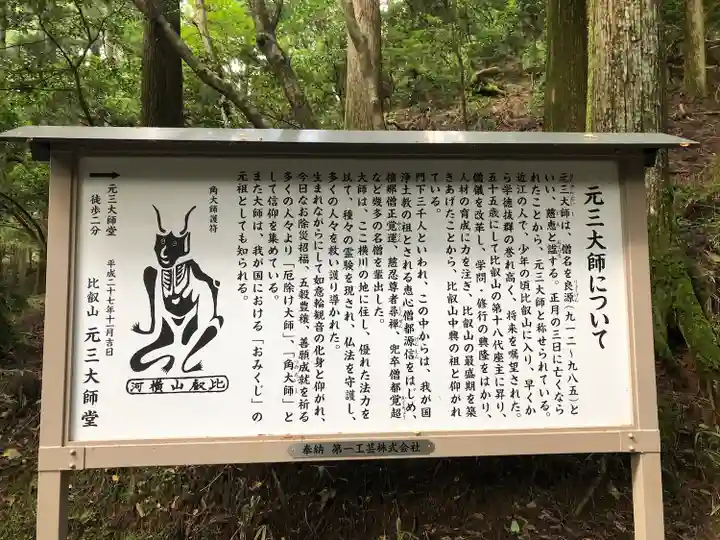 元三大師について
元三大師は、僧名を良源（九一二〜九八五）と
いい、慈恵と諡する。正月の三日に亡くなら
れたことから、元三大師と称せられている。
近江の人で、少年の頃比叡山に入り、早くか
ら学徳抜群の誉れ高く、将来を嘱望された。
五十五歳にして比叡山の第十八代座主に昇り、
僧儀を改革し、学問、修行の興隆をはかり、
人材の育成に力を注ぎ、比叡山の最盛期を築
きあげたことから、比叡山中興の祖と仰がれ
ている。
門下三千人といわれ、この中からは、我が国
浄土教の祖とされる恵心僧都源信をはじめ、
檀那僧正覚運、慈忍尊者尋禅、兜卒僧都覚超
など幾多の名僧を輩出した。
大師は、ここ横川の地に住し、優れた法力を
以て、種々の霊験を現され、仏法を守護し、
多くの人々を救い護り導かれた。
生まれながらにして如意輪観音の化身と仰がれ、
今日なお除災招福、五穀豊穣、善願成就を祈る
多くの人々より「厄除け大師」、「角大師」と
して信仰を集めている。
また大師は、我が国における「おみくじ」の
元祖としても知られる。
角大師護符
比叡山横河
→
元三大師堂
徒歩二分
平成二十七年十一月吉日
比叡山 元三大師堂
奉納 第一工芸株式会社